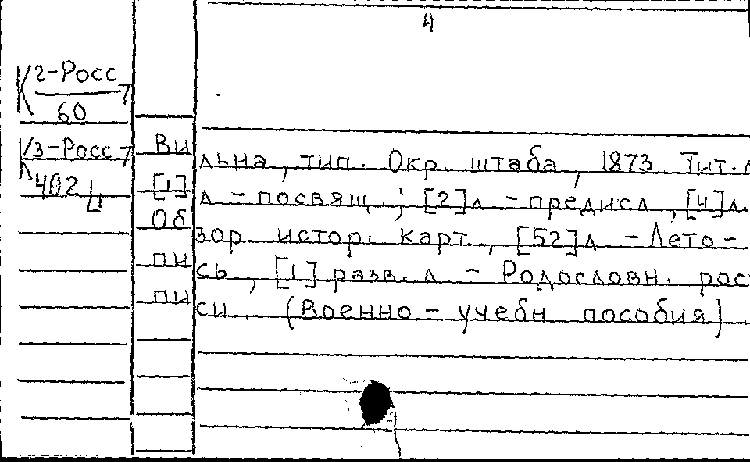 4
К 2-Росс 7
60
К 3-Росс 7
402 ц
Вильна, тип. Окр. штаба, 1873. Тит. л
[1] л - посвящ.; [2] л - предисл, [4] л.
Обзор истор. карт, [52] л - Лето-
пись, [1] разв. л - Родословн. рос
писи. (Военно-учебн пособия)